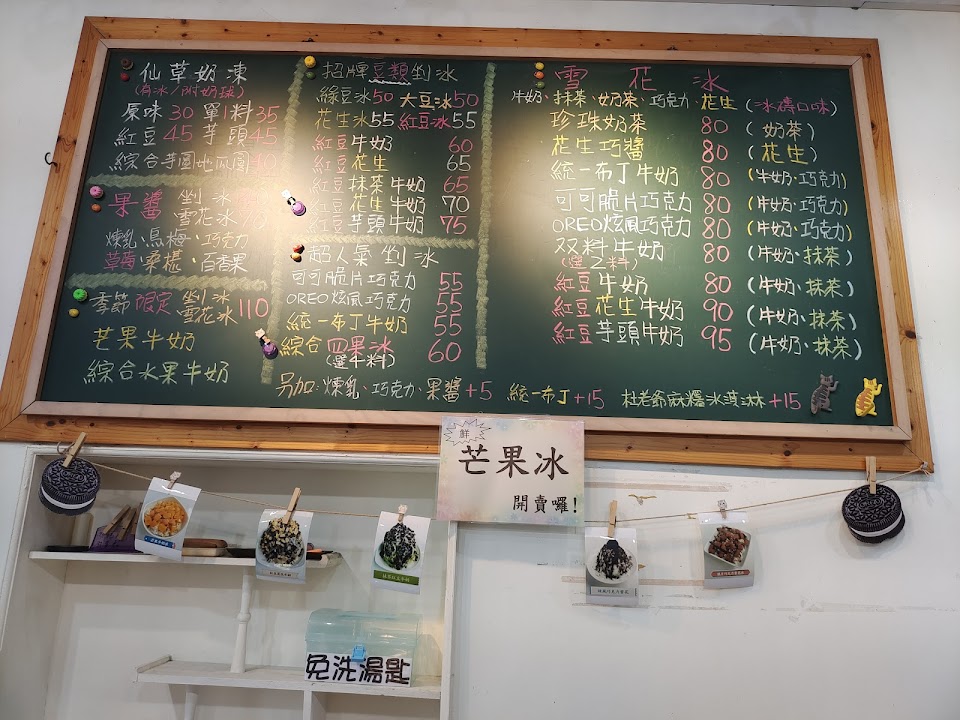 仙草奶凍
(有冰/附奶球)
原味30 單1料35
紅豆45 芋頭45
綜合芋圓地瓜圓
果醬 剉冰
雪花冰
煉乳·烏梅·巧克力
草莓·桑椹·百香果
季節限定 剉冰 110
雪花冰
芒果牛奶
綜合水果牛奶
招牌豆類剉冰
綠豆冰50 大豆冰50
花生冰55 紅豆冰55
紅豆牛奶 60
紅豆花生 65
紅豆抹茶牛奶 65
紅豆花生牛奶 70
紅豆芋頭牛奶 75
超人氣剉冰
可可脆片巧克力 55
OREO炫風巧克力 55
統一布丁牛奶 55
綜合四果冰 60
(選4料)
雪花冰
牛奶·抹茶·奶茶·巧克力·花生(冰磚口味)
珍珠奶茶 80 (奶茶)
花生巧醬 80 (花生)
統一布丁牛奶 80 (牛奶·巧克力)
可可脆片巧克力 80 (牛奶·巧克力)
OREO炫風巧克力 80 (牛奶·巧克力)
双料牛奶 80 (牛奶·抹茶)
(選2料)
紅豆牛奶 80 (牛奶·抹茶)
紅豆花生牛奶 90 (牛奶·抹茶)
紅豆芋頭牛奶 95 (牛奶·抹茶)
另加:煉乳·巧克力·果醬+5 統一布丁+15 杜老爺麻糬冰淇淋+15
鮮
芒果冰
開賣囉!
免洗湯匙